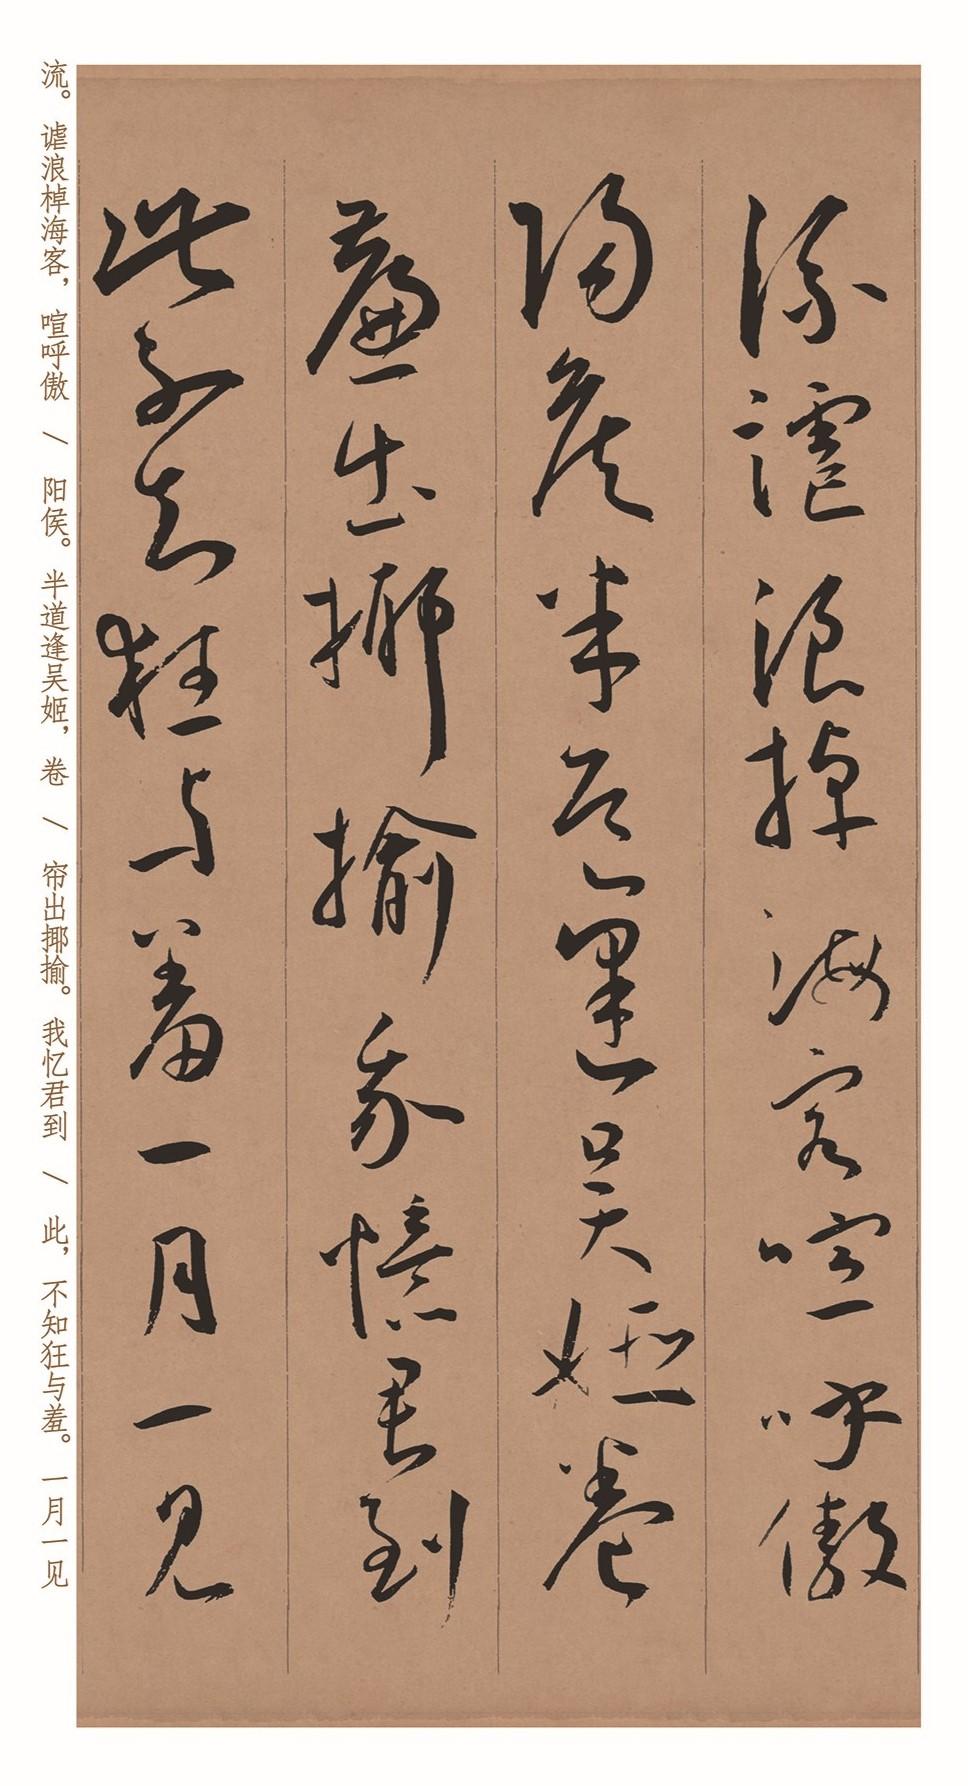 流謔浪棹海客喧呼傲
陽侯半道逢吴姬卷
簾出揶揄我憶君到
此不知狂与羞一月一見
流。谑浪棹海客，喧呼傲 / 阳侯。半道逢吴姬，卷 / 帘出揶揄。我忆君到 / 此，不知狂与羞。一月一见